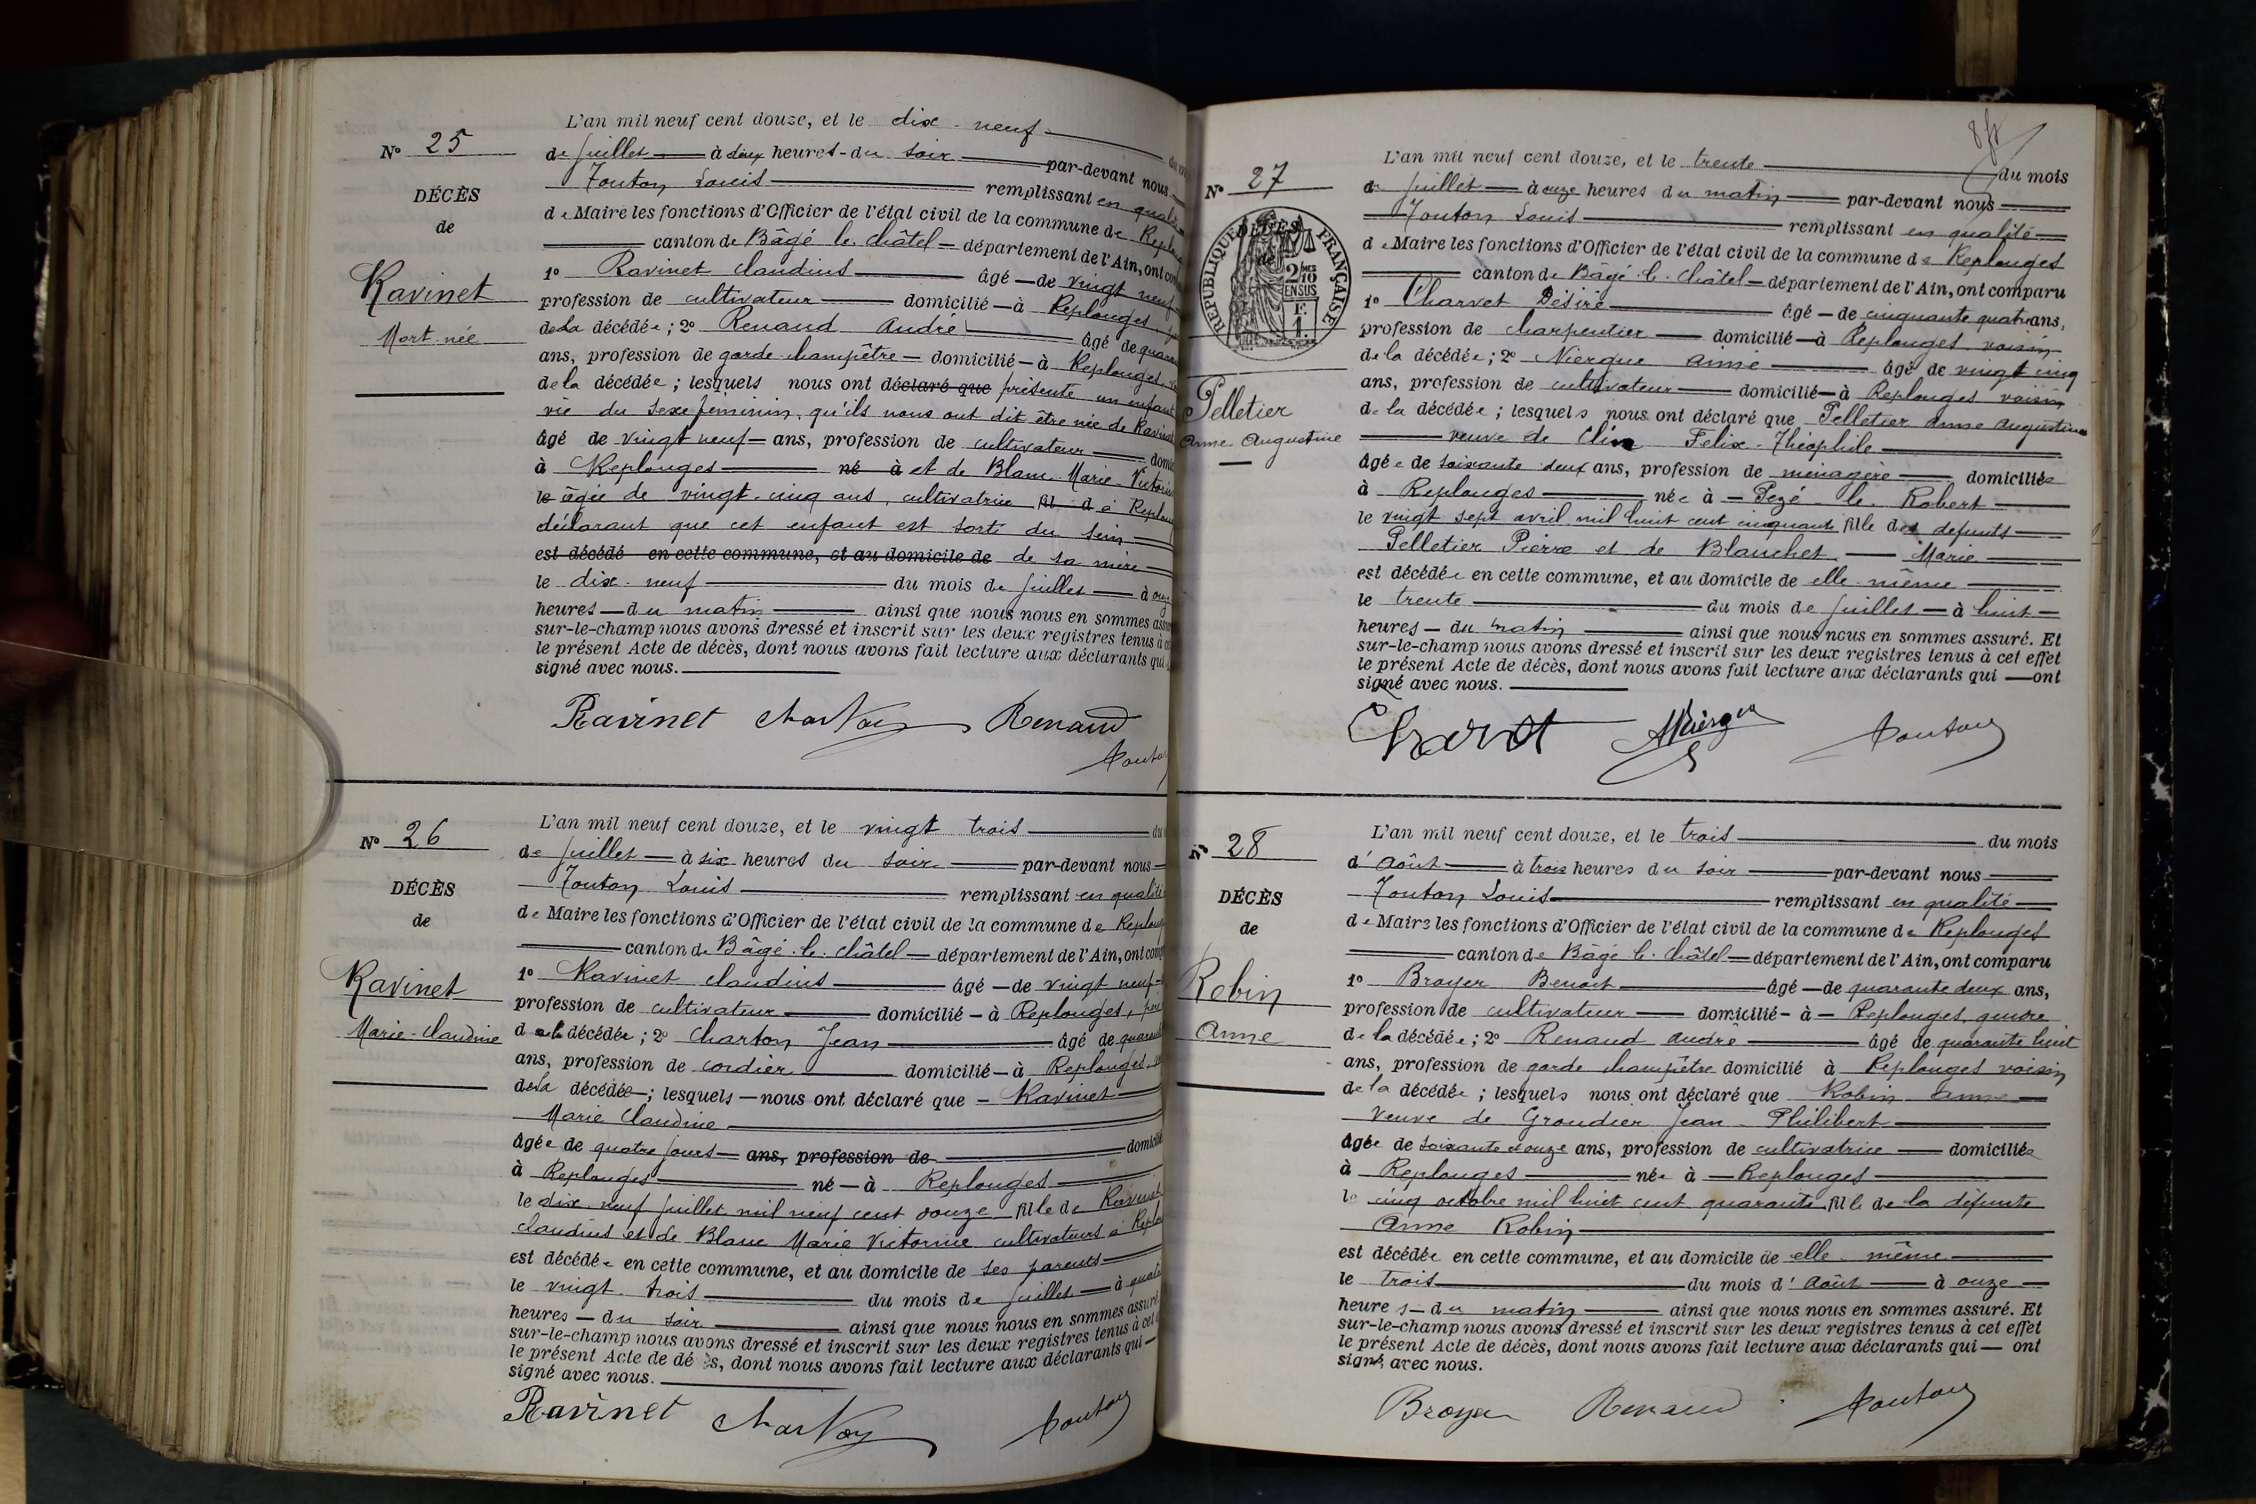 N° 25
DÉCÈS
de
Ravinet
Mort-née
L'an mil neuf cent douze, et le dix-neuf
de juillet à deux heures du soir par-devant nous
Touton Louis remplissant en qualité
de Maire les fonctions d'Officier de l'état civil de la commune de
canton de Bâgé-le-châtel département de l'Ain, ont
1° Ravinet claudius âgé de vingt neuf
profession de cultivateur domicilié à Replonges
de la décédée; 2° Renaud andré âgé de
ans, profession de garde-champêtre domicilié à Replonges
de la décédée; lesquels nous ont déclaré que présenté un enfant
vie du sexe féminin, qu'ils nous ont dit être née de
âgé de vingt neuf ans, profession de cultivateur
à Replonges né à et de Blanc Marie
le âgée de vingt-cinq ans, cultivatrice fil d à
déclarant que cet enfant est sorti du sein
est décédé en cette commune, et au domicile de de sa mère
le dix-neuf du mois de juillet à
heures du matin ainsi que nous nous en sommes
sur-le-champ nous avons dressé et inscrit sur les deux registres tenus à
le présent Acte de décès, dont nous avons fait lecture aux déclarants qui
signé avec nous.
Ravinet Renaud
N° 26
DÉCÈS
de
Ravinet
Marie-Claudine
L'an mil neuf cent douze, et le vingt trois
de juillet à six heures du soir par-devant nous
Touton Louis remplissant en qualité
de Maire les fonctions d'Officier de l'état civil de la commune de
canton de Bâgé-le-châtel département de l'Ain, ont
1° Ravinet claudius âgé de vingt neuf
profession de cultivateur domicilié à Replonges,
de la décédée; 2° Charton Jean âgé de
ans, profession de cordier domicilié à Replonges
de la décédée; lesquels nous ont déclaré que Ravinet
Marie Claudine
âgée de quatre jours ans, profession de
à Replonges né à Replonges
le dix-neuf juillet mil neuf cent douze fille de Ravinet
claudius et de Blanc Marie Victorine cultivateurs à
est décédée en cette commune, et au domicile de ses parents
le vingt-trois du mois de juillet à
heures du soir ainsi que nous nous en sommes assuré.
sur-le-champ nous avons dressé et inscrit sur les deux registres tenus à cet
le présent Acte de décès, dont nous avons fait lecture aux déclarants qui
signé avec nous.
Ravinet Touton
N° 27
RÉPUBLIQUE FRANÇAISE
2/10 EN SUS
Pelletier
anne-augustine
L'an mil neuf cent douze, et le trente du mois
de juillet à onze heures du matin par-devant nous
Touton Louis remplissant en qualité
de Maire les fonctions d'Officier de l'état civil de la commune de Replonges
canton de Bâgé-le-châtel département de l'Ain, ont comparu
1° Charvet Désiré âgé de cinquante quatre ans,
profession de charpentier domicilié à Replonges voisin
de la décédée; 2° Niergue aimé âgé de vingt cinq
ans, profession de cultivateur domicilié à Replonges voisin
de la décédée; lesquels nous ont déclaré que Pelletier anne augustine
veuve de Felix-Théophile
âgée de soixante-deux ans, profession de ménagère domiciliée
à Replonges née à Pezé-le-Robert
le vingt sept avril mil huit cent cinquante fille des défunts
Pelletier Pierre et de Blanchet Marie
est décédée en cette commune, et au domicile de elle-même
le trente du mois de juillet à huit
heures du matin ainsi que nous nous en sommes assuré. Et
sur-le-champ nous avons dressé et inscrit sur les deux registres tenus à cet effet
le présent Acte de décès, dont nous avons fait lecture aux déclarants qui ont
signé avec nous.
Charvet Touton
N° 28
DÉCÈS
de
Robin
anne
L'an mil neuf cent douze, et le trois du mois
d'août à trois heures du soir par-devant nous
Touton Louis remplissant en qualité
de Maire les fonctions d'Officier de l'état civil de la commune de Replonges
canton de Bâgé-le-châtel département de l'Ain, ont comparu
1° Broyer Benoit âgé de quarante deux ans,
profession de cultivateur domicilié à Replonges, gendre
de la décédée; 2° Renaud andré âgé de quarante huit
ans, profession de garde champêtre domicilié à Replonges voisin
de la décédée; lesquels nous ont déclaré que Robin anne
veuve de Groudier Jean-Philibert
âgée de soixante onze ans, profession de cultivatrice domiciliée
à Replonges née à Replonges
le cinq octobre mil huit cent quarante fille de la défunte
anne Robin
est décédée en cette commune, et au domicile de elle-même
le trois du mois d'août à onze
heures du matin ainsi que nous nous en sommes assuré. Et
sur-le-champ nous avons dressé et inscrit sur les deux registres tenus à cet effet
le présent Acte de décès, dont nous avons fait lecture aux déclarants qui ont
signé avec nous.
Broyer Renaud Touton